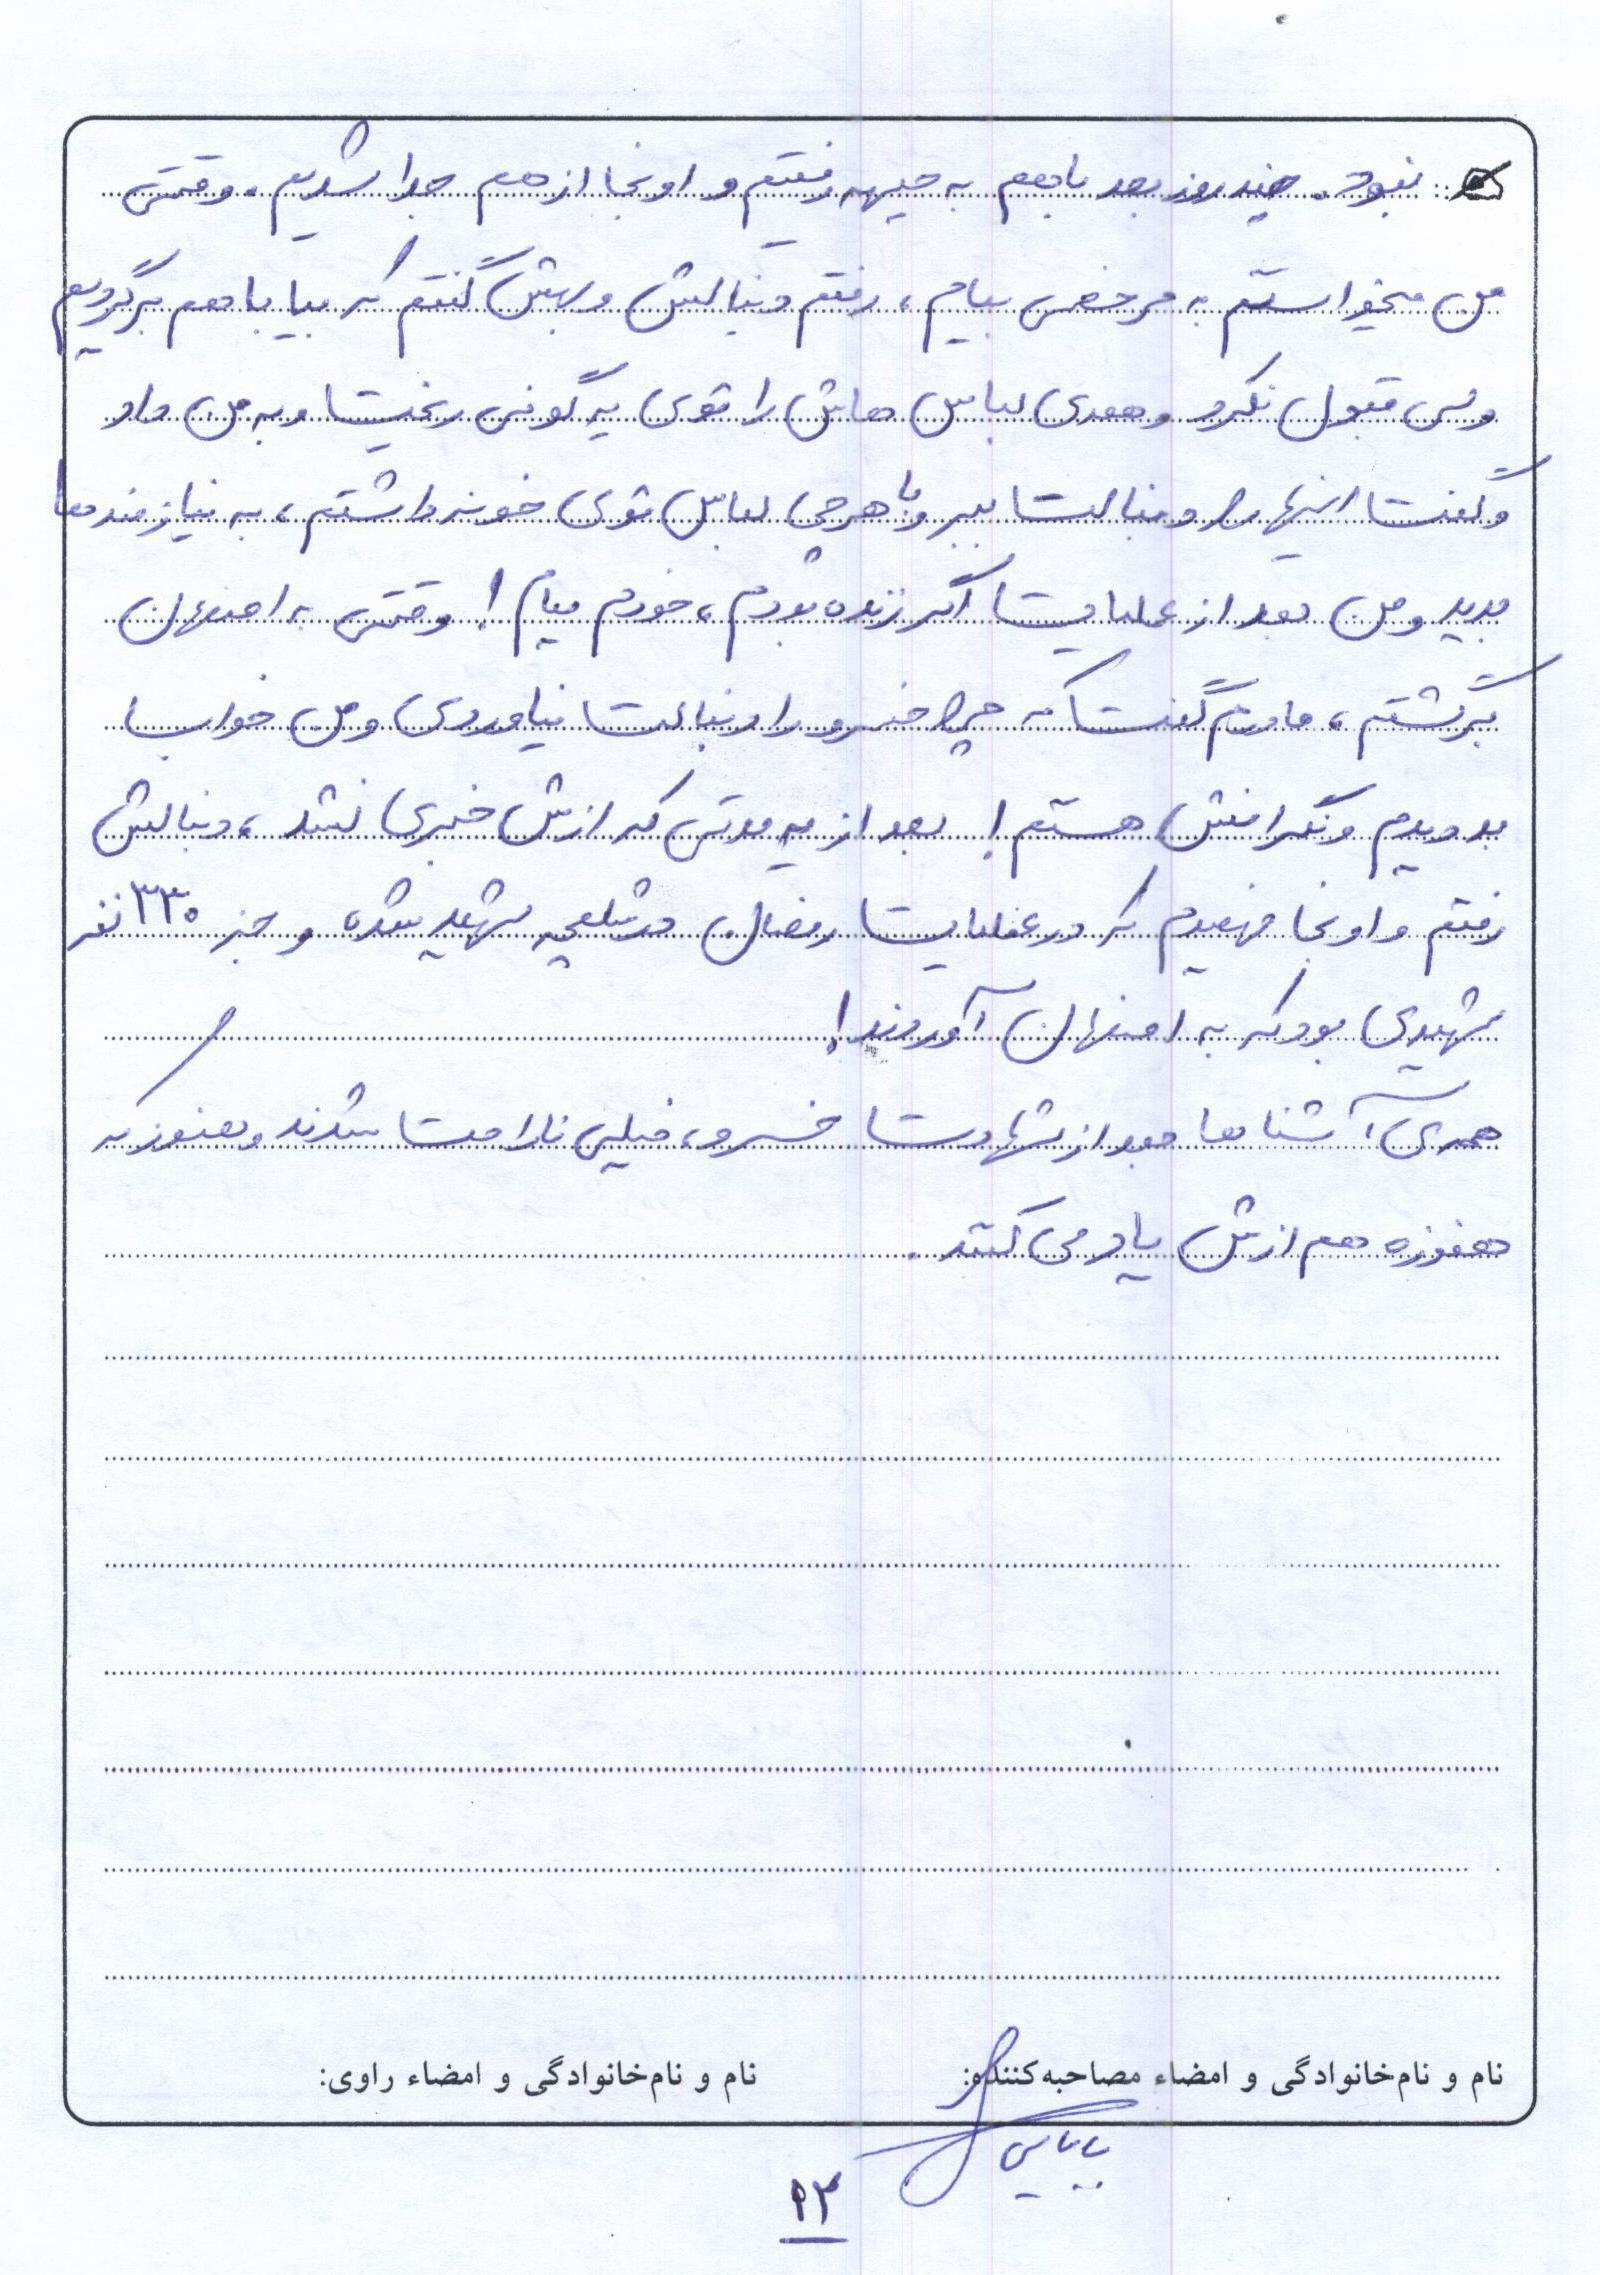 نبود. چند روز بعد با هم به جبهه رفتیم و اونجا از هم جدا شدیم. وقتی
من میخواستم به مرخصی بیام، رفتم دنبالش و بهش گفتم که بیا با هم برگردیم
ولی قبول نکرد و همه‌ی لباس هاش را توی یه گونی ریخت و به من داد
و گفت اینها را دنبالت ببر و با هرچی لباس توی خونه داشتم، به نیازمندها
بدید و من بعد از عملیات اگر زنده بودم، خودم میام! وقتی به اصفهان
برگشتم، مادرم گفت که چرا خسرو را دنبالت نیاوردی و من خواب
بد دیدم و نگرانش هستم! بعد از یه مدتی که ازش خبری نشد، دنبالش
رفتم و اونجا فهمیدم که در عملیات رمضان در شلمچه شهید شده و جز ۳۳۰ نفر
شهیدی بود که به اصفهان آوردند!
همه‌ی آشناها بعد از شهادت خسرو، خیلی ناراحت شدند و هنوز که
هنوزه هم ازش یاد می کنند.
نام و نام‌خانوادگی و امضاء مصاحبه‌کننده:
نام و نام‌خانوادگی و امضاء راوی:
بابایی
۱۳